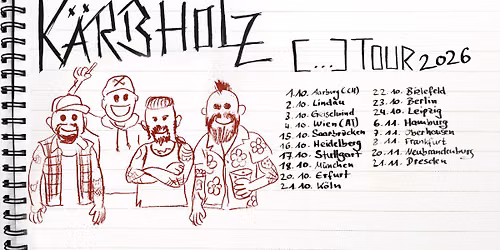 KÄRBHOLZ
[...] TOUR 2026
1.10. Aarburg (CH)
2.10. Lindau
3.10. Geiselwind
4.10. Wien (A)
15.10. Saarbrücken
16.10. Heidelberg
17.10. Stuttgart
18.10. München
20.10. Erfurt
21.10. Köln
22.10. Bielefeld
23.10. Berlin
24.10. Leipzig
6.11. Hamburg
7.11. Oberhausen
8.11. Frankfurt
20.11. Neubrandenburg
21.11. Dresden